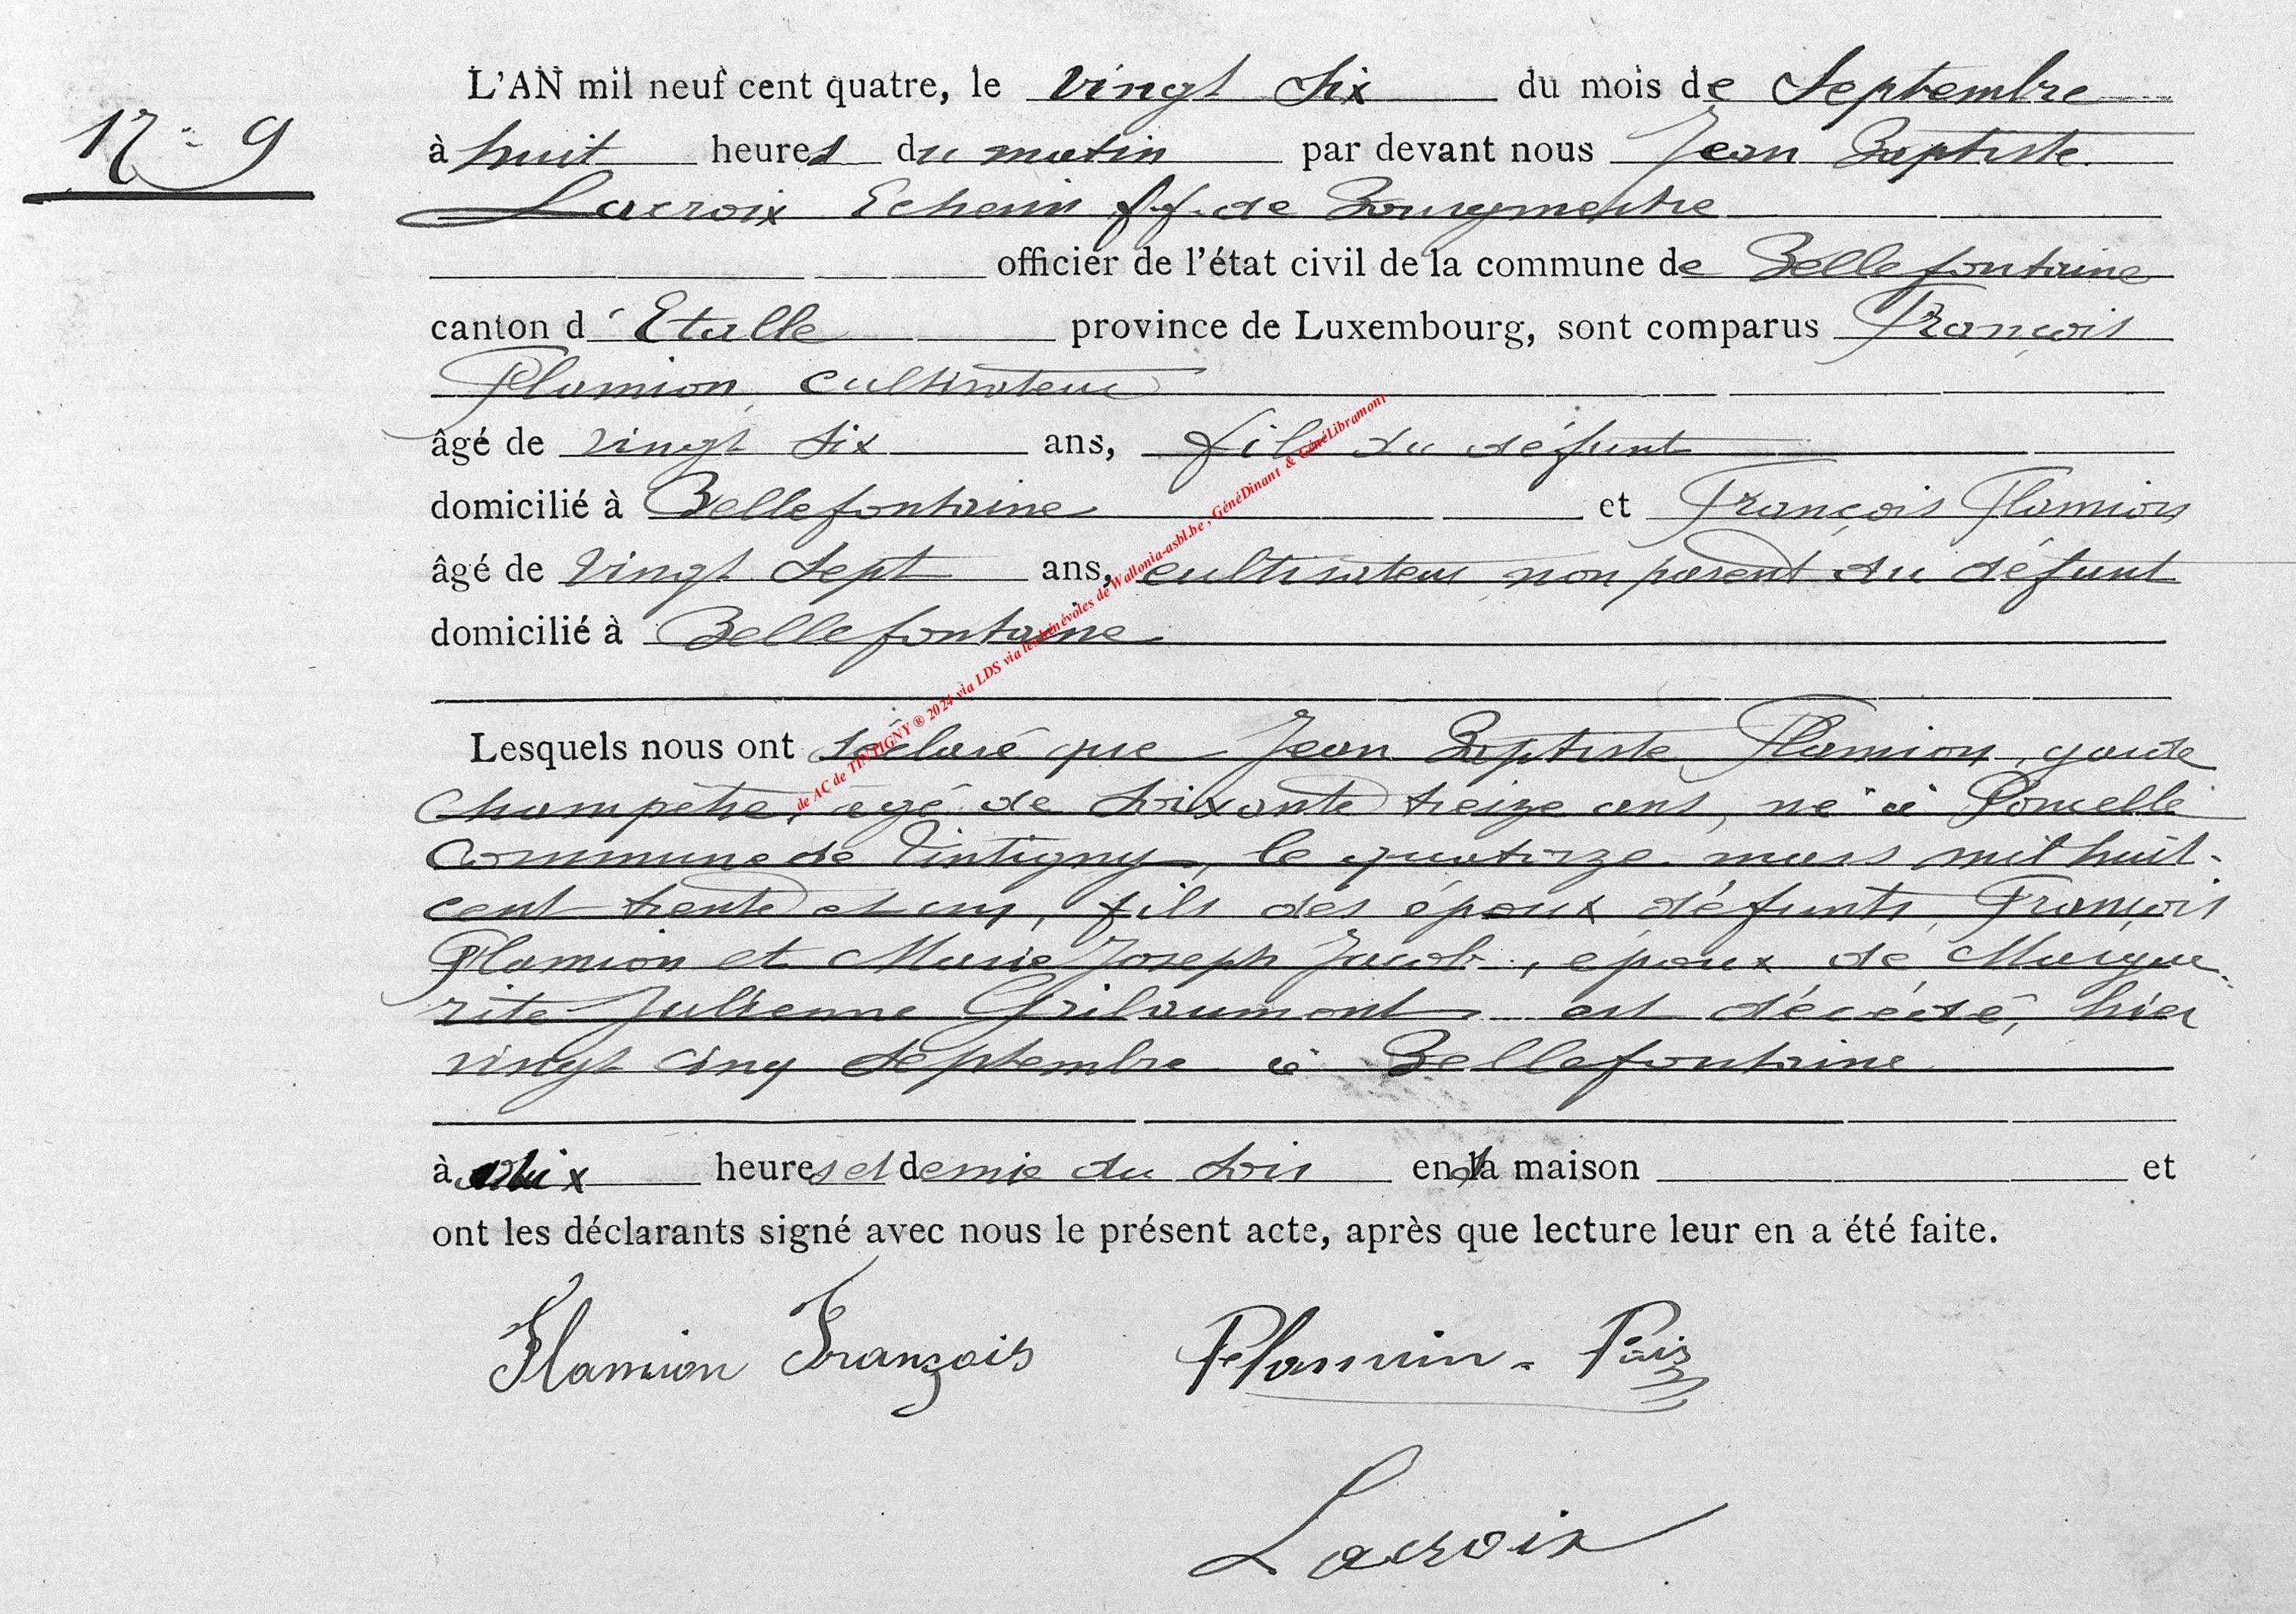 N° 9
L'AN mil neuf cent quatre, le vingt six du mois de Septembre
à huit heures du matin par devant nous Jean Baptiste
Lacroix Echevin ff. de Bourgmestre
officier de l'état civil de la commune de Bellefontaine
canton d'Etalle province de Luxembourg, sont comparus François
Flamion, cultivateur
âgé de vingt six ans, fils du défunt
domicilié à Bellefontaine et François Flamion
âgé de vingt sept ans, cultivateur, non parent du défunt
domicilié à Bellefontaine
Lesquels nous ont déclaré que Jean Baptiste Flamion, garde
champêtre, âgé de soixante treize ans, né à Poncelle
commune de Tintigny, le quatorze mars mil huit
cent trente et un, fils des époux défunts, François
Flamion et Marie Joseph Jacob, époux de Margue-
rite Julienne Grilaumont est décédé, hier
vingt cinq septembre à Bellefontaine
à six heures et demie du soir en sa maison et
ont les déclarants signé avec nous le présent acte, après que lecture leur en a été faite.
Flamion François Flamion
Lacroix
de AC de TINTIGNY ® 2024 via LDS via les bénévoles de Wallonia-asbl.be, GénéDinant & GénéLibramont